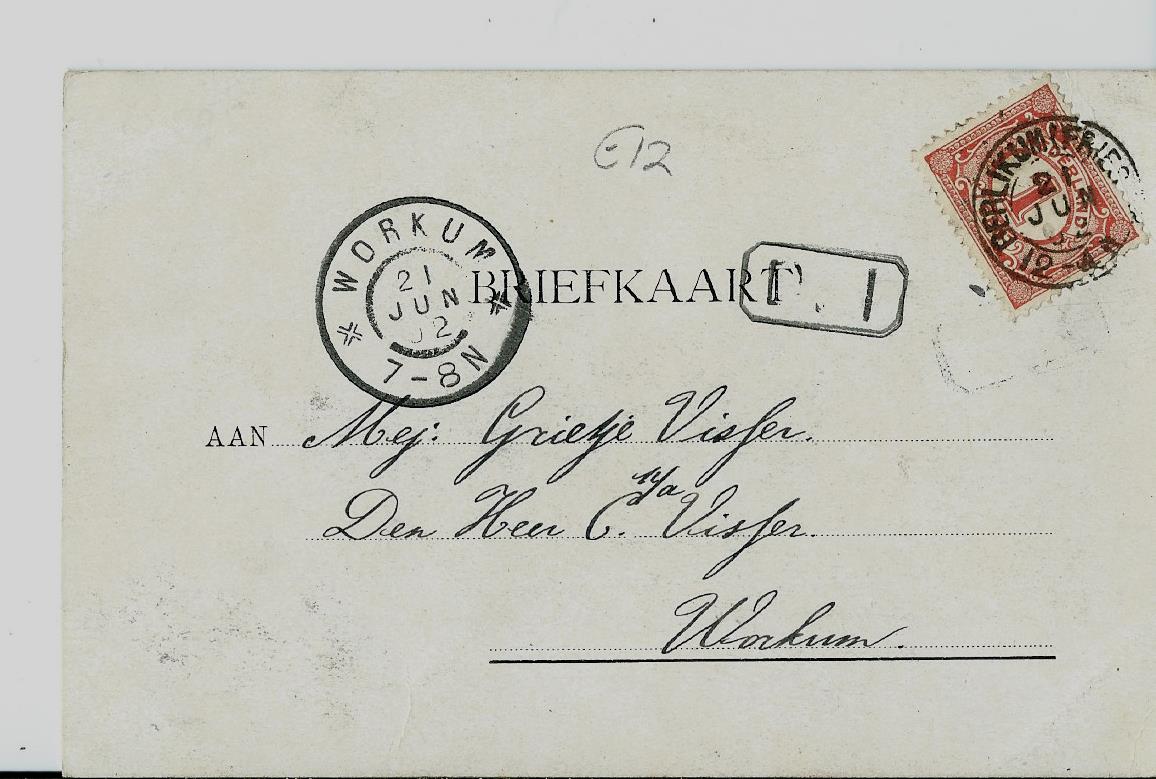 €12
WORKUM
21
JUN
02
7-8N
BRIEFKAART
1
BERLIKUM (FRIES
JUN
12-4N
AAN Mej: Grietje Visser.
p/a
Den Heer C. Visser.
Workum.